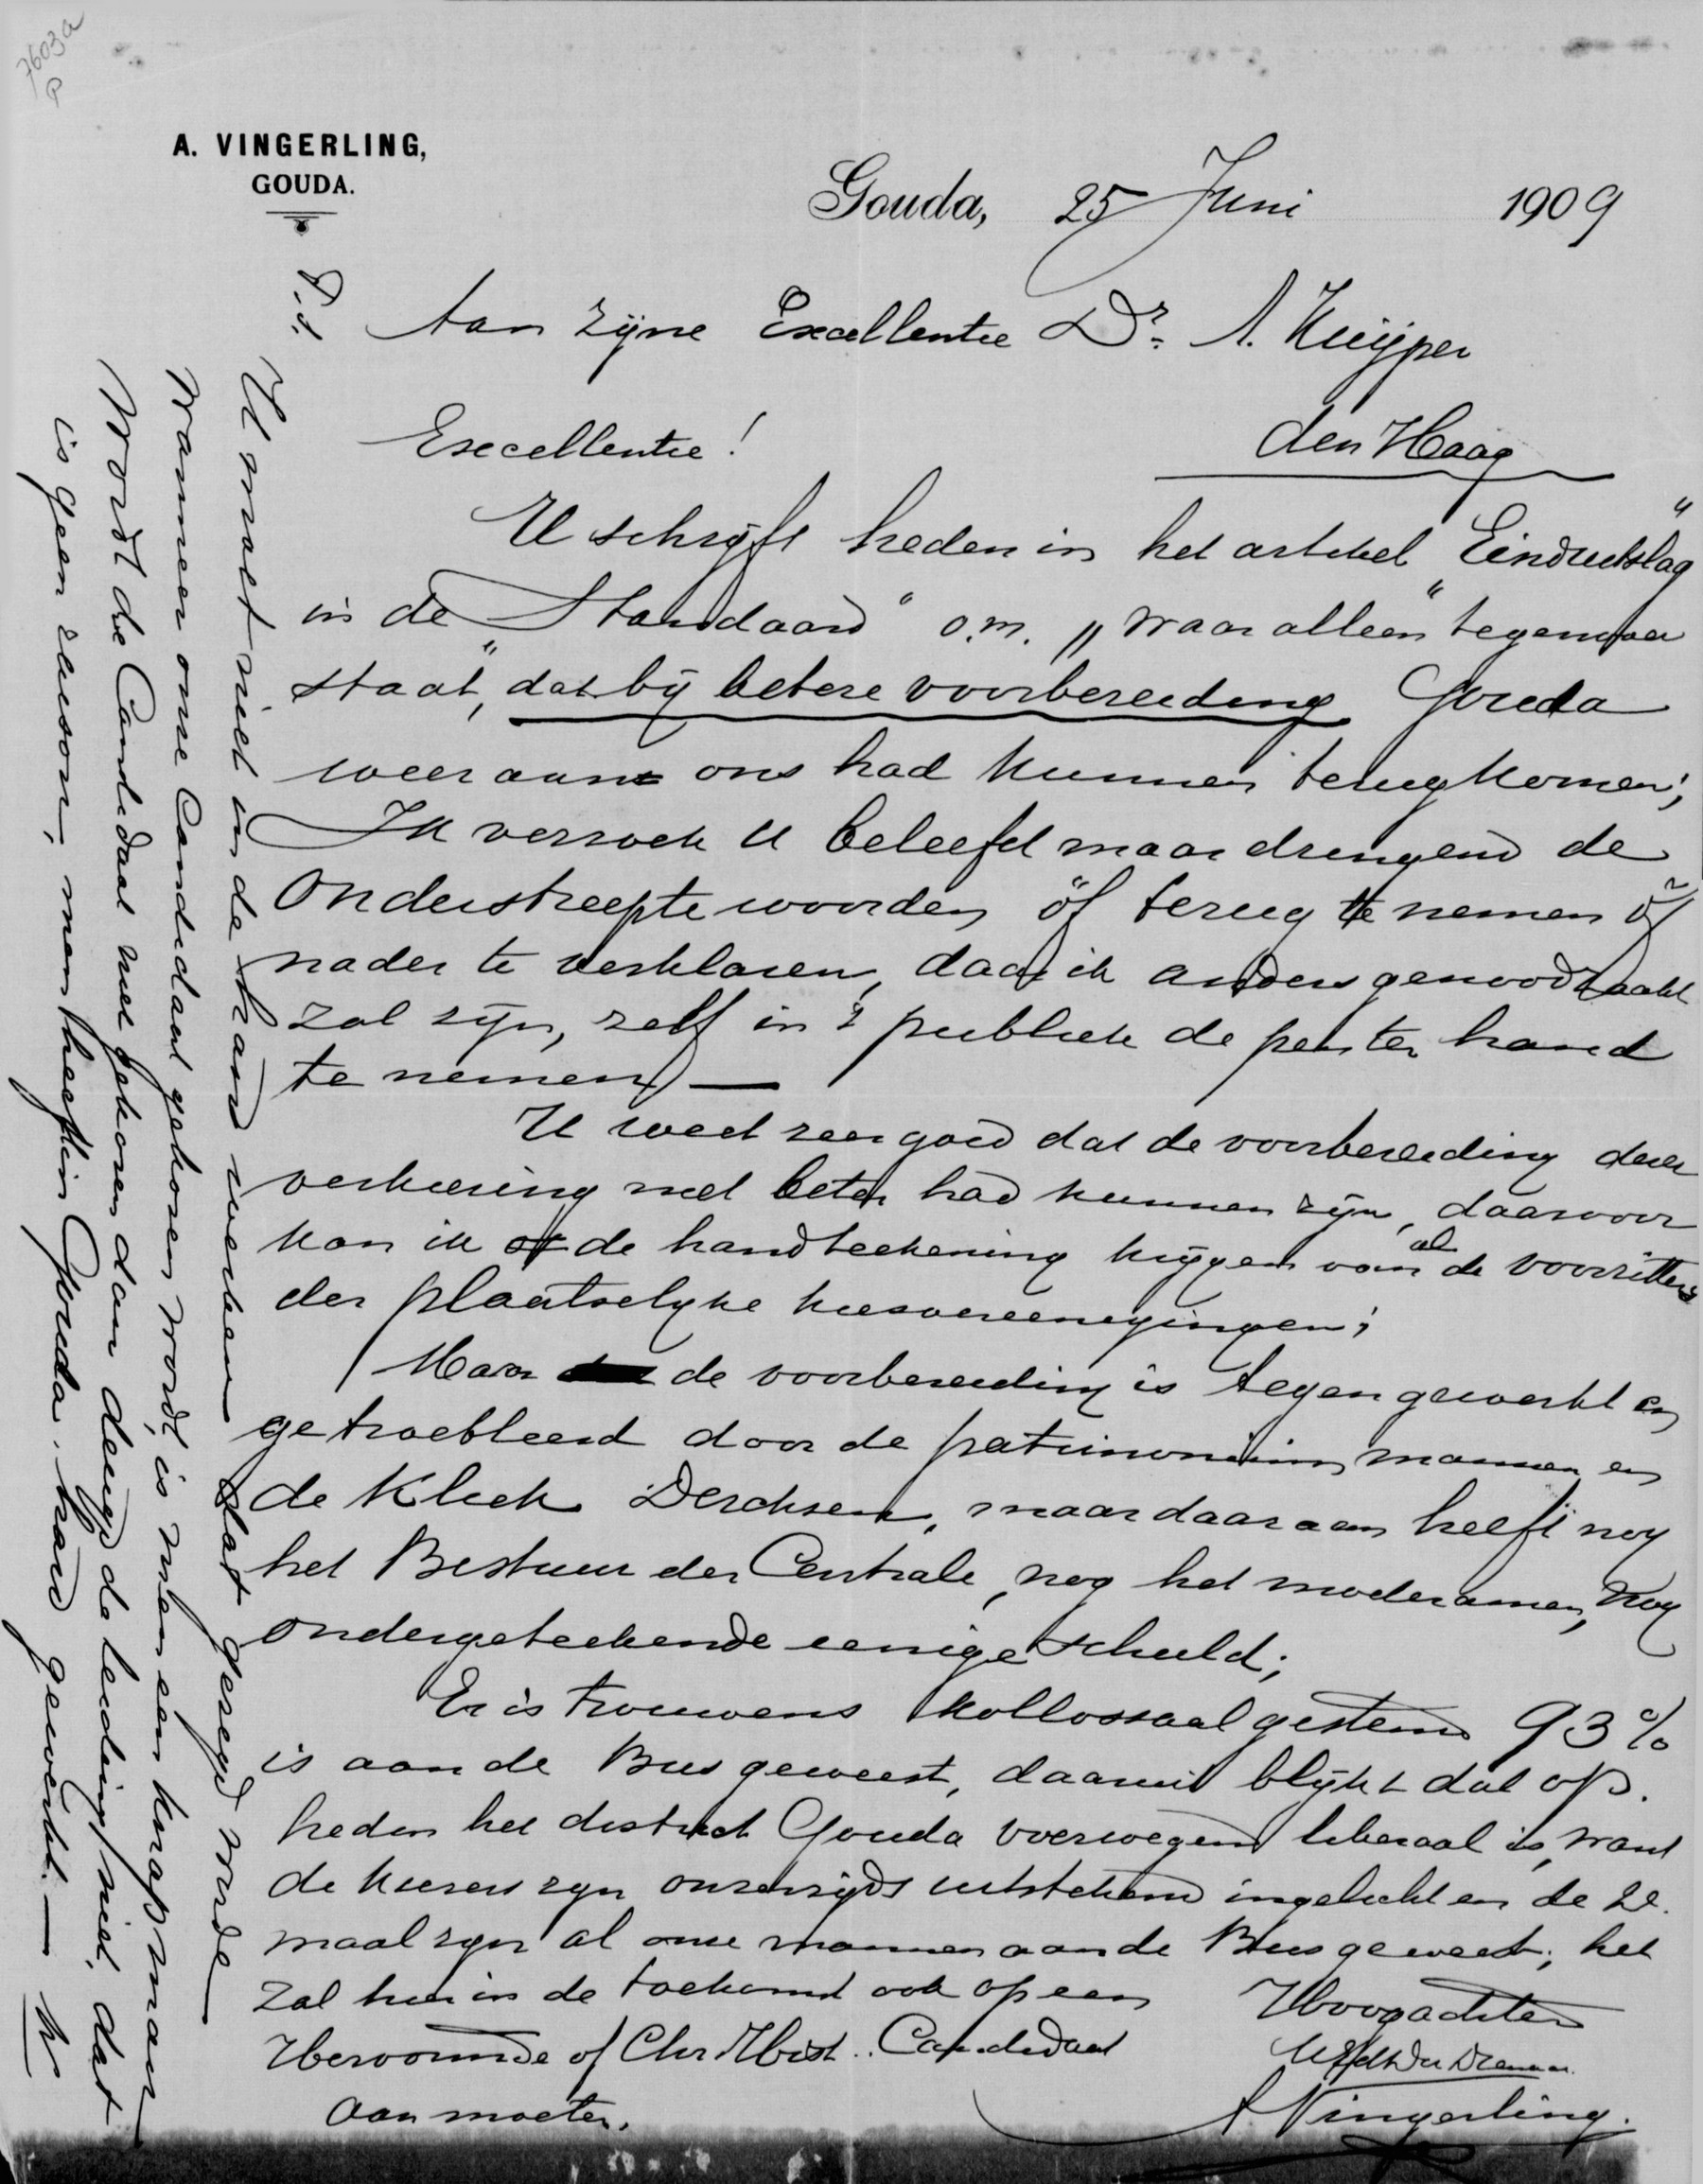 7603a
P
A. VINGERLING,
GOUDA.
Gouda, 25 Juni 1909
Aan zijne Excellentie Dr. A. Kuijper
den Haag
Excellentie!
U schrijft heden in het artikel "Einduitslag"
in de "Standaard" o.m. "waar alleen" tegenover
staat, "dat bij betere voorbereiding Gouda
weer aan ons had kunnen terugkomen;
Ik verzoek U beleefd maar dringend de
onderstreepte woorden òf terug te nemen òf
nader te verklaren, daar ik anders genoodzaakt
zal zijn, zelf in 't publiek de pen ter hand
te nemen. —
U weet zeer goed dat de voorbereiding dezer
verkiezing niet beter had kunnen zijn, daarvoor
kan ik de handteekening krijgen van al de voorzitters
der plaatselyke kiesvereenigingen;
Maar de voorbereiding is tegengewerkt en
getroebleerd door de patrimonium mannen en
de Kliek Dercksen, maar daaraan heeft nog
het Bestuur der Centrale, nog het moderamen, nog
ondergeteekende eenige schuld;
Er is trouwens kollossaal gestemd 93%
is aan de Bus geweest, daaruit blykt dat op
heden het district Gouda overwegend liberaal is, want
de kiezers zyn onzerzyds uitstekend ingelicht en de 2e
maal zyn al onze mannen aan de Bus geweest; het
zal hier in de toekomst ook op een
Hervormde of Chr Hist. Candidaat
aan moeten.
Hoogachtend
UEd Dw Dienaar
A. Vingerling.
P.S. U moet niet in de hand werken dat gezegd worde
wanneer onze Candidaat gekozen wordt, is men een knap man
wordt de Candidaat niet gekozen dan deugd de leiding niet, dat
is geen raison, men heeft in Gouda hard gewerkt. — V